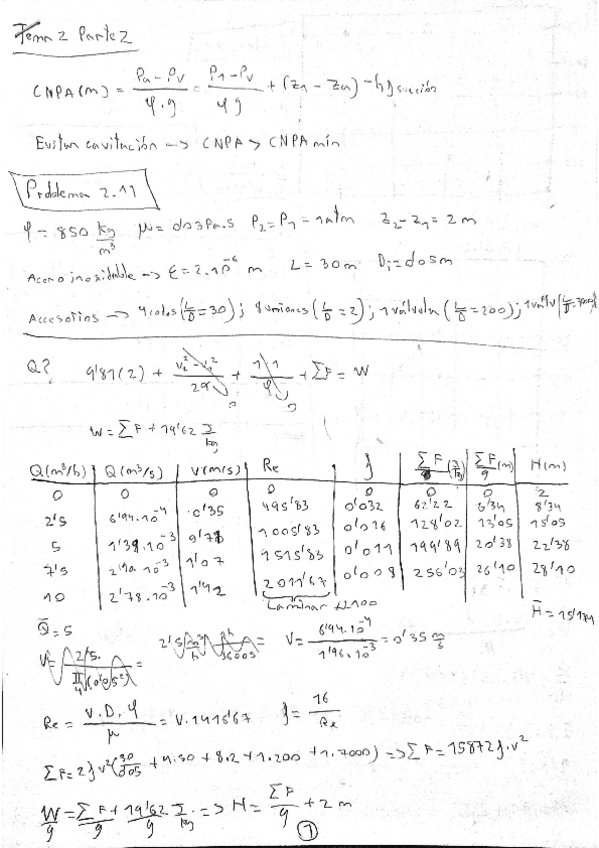 Tema 2 Parte 2
CNPA(m) = (Pa - Pv)/(φ.g) = (P1 - Pv)/(φg) + (z1 - za) - hf succión
Evitar cavitación -> CNPA > CNPA mín
Problema 2.11
φ = 850 kg/m³ μ = 0'03 Pa.s P2 = P1 = 1 atm z2 - z1 = 2 m
Acero inoxidable -> ε = 2.10⁻⁶ m L = 30m Di = 0'05m
Accesorios -> 4 codos (L/D = 30); 8 uniones (L/D = 2); 1 válvula (L/D = 200);
Q? 9'81(2) + + + ΣF = W
W = ΣF + 19'62 J/kg
Q(m³/h) | Q(m³/s) | V(m/s) | Re | f | ΣF (J/kg) | ΣF/g (m) | H(m)
0 0 0 0 0 0 0 2
2'5 6'94.10⁻⁴ 0'35 495'83 0'032 62'22 6'34 8'34
5 1'39.10⁻³ 0'71 1005'83 0'016 128'02 13'05 15'05
7'5 10⁻³ 1'07 1515'83 0'011 199'89 20'38 22'38
10 2'78.10⁻³ 1'42 2011'67 0'008 256'03 26'10 28'10
Laminar <2100
Q̄ = 5
V = 6'94.10⁻⁴/1'96.10⁻³ = 0'35 m/s
Re = V.D.φ/μ = V.1416'67 f = 16/Re
ΣF = 2fv²(30/0'05 + 4.30 + 8.2 + 1.200 + 1.7000) => ΣF = 15872f.v²
W/g = ΣF/g + 19'62/g J/kg => H = ΣF/g + 2 m
1